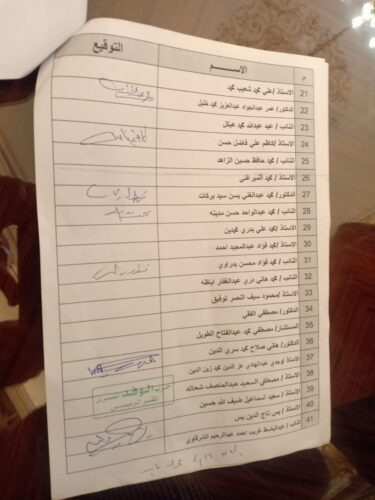 م الاســـم التوقيع
21 الاستاذ /علي محمد شعيب محمد
22 الدكتور/ عمر عبدالجواد عبدالعزيز محمد خليل
23 النائب / عيد عبدالله محمد هيكل
24 الاستاذ /كاظم علي فاضل حسن
25 النائب / محمد حافظ حسين الزاهد
26 الاستاذ / محمد الميرغني
27 الدكتور/ محمد عبدالغني يسن سيد بركات
28 النائب / محمد عبدالواحد حسن مدينه
29 الاستاذ/ محمد علي بدري محمدين
30 الاستاذ/ محمد فؤاد عبدالمجيد احمد
31 النائب / محمد فؤاد محسن بدراوي
32 النائب / محمد هاني دري عبدالغفار اباظه
33 الاستاذ /محمود سيف النصر توفيق
34 الدكتور/ مصطفي الفقي
35 المستشار/ مصطفي محمد عبدالفتاح الطويل
36 الدكتور/ هاني صلاح محمد سري الدين
37 الاستاذ /وجدي عبدالهادي عز الدين محمد زين الدين
38 الاستاذ / مصطفي السعيد عبدالمنصف شحاته
39 الاستاذ / سعيد اسماعيل ضيف الله حسين
40 الاستاذ / يس تاج الدين يس
41 النائب / عبدالباسط غريب احمد عبدالرحيم الشرقاوي
حزب الوفد المصري
المقر الرئيسي